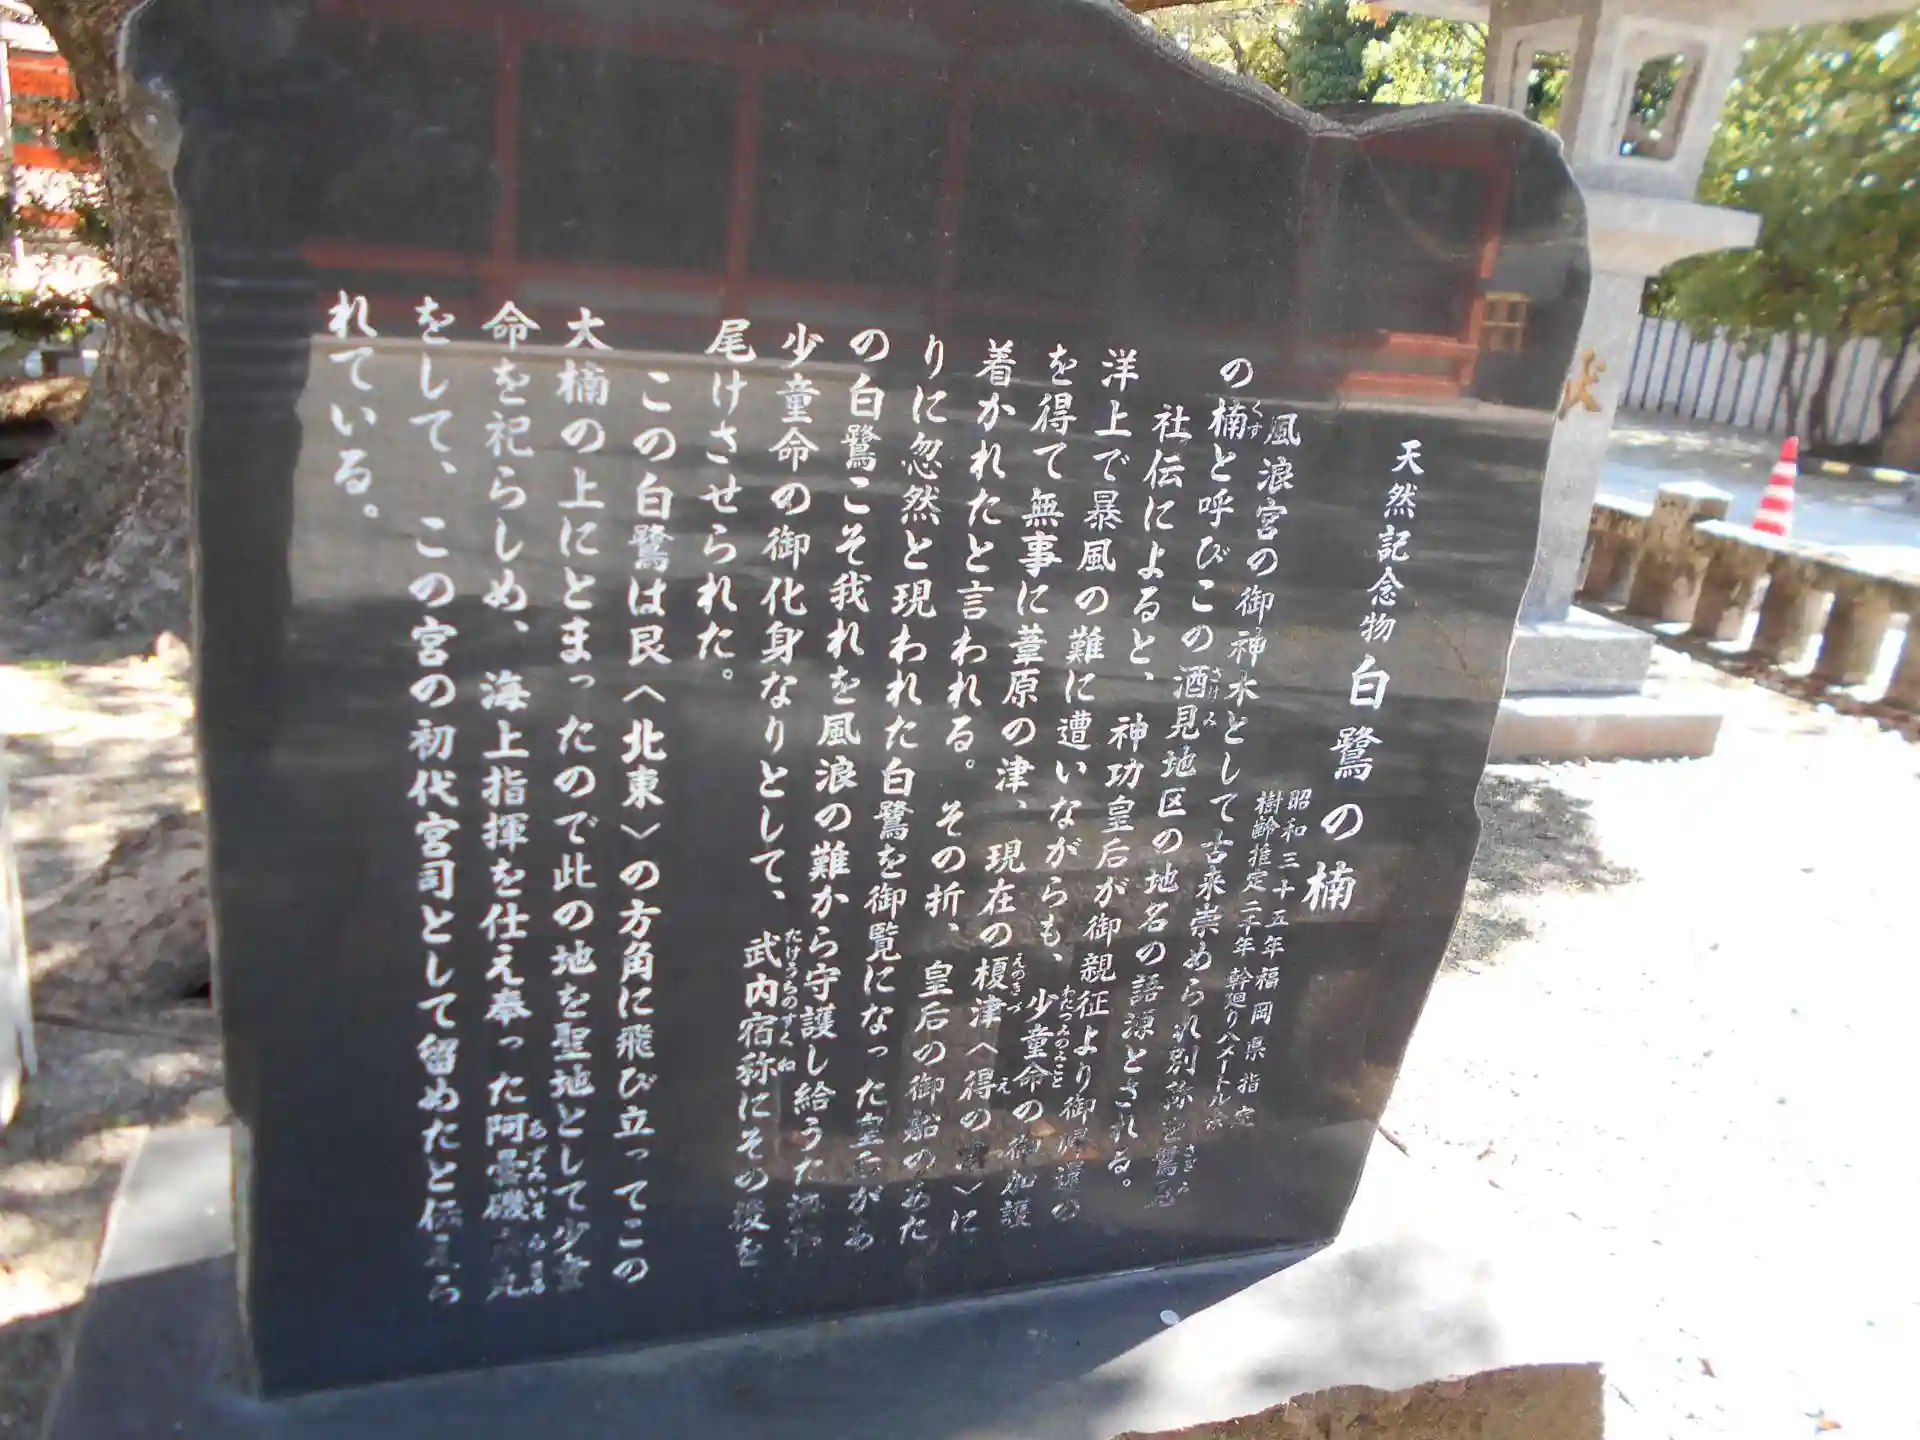 天然記念物 白鷺の楠
昭和三十五年福岡県指定
樹齢推定二千年 幹廻り八メートル余
風浪宮の御神木として古来崇められ別称を鷺
の楠と呼びこの酒見地区の地名の語源とされる。
社伝によると、神功皇后が御親征より御帰還の
洋上で暴風の難に遭いながらも、少童命の御加護
を得て無事に葦原の津、現在の榎津〈得の津〉に
着かれたと言われる。その折、皇后の御船のあた
りに忽然と現われた白鷺を御覧になった皇后があ
の白鷺こそ我れを風浪の難から守護し給うた
少童命の御化身なりとして、武内宿称にその後を
尾けさせられた。
この白鷺は艮〈北東〉の方角に飛び立ってこの
大楠の上にとまったので此の地を聖地として少童
命を祀らしめ、海上指揮を仕え奉った阿曇磯良丸
をして、この宮の初代宮司として留めたと伝えら
れている。
くす
さけみ
わだつみのみこと
えのきづ
え
つ
たけうちのすくね
あずみいそらまる